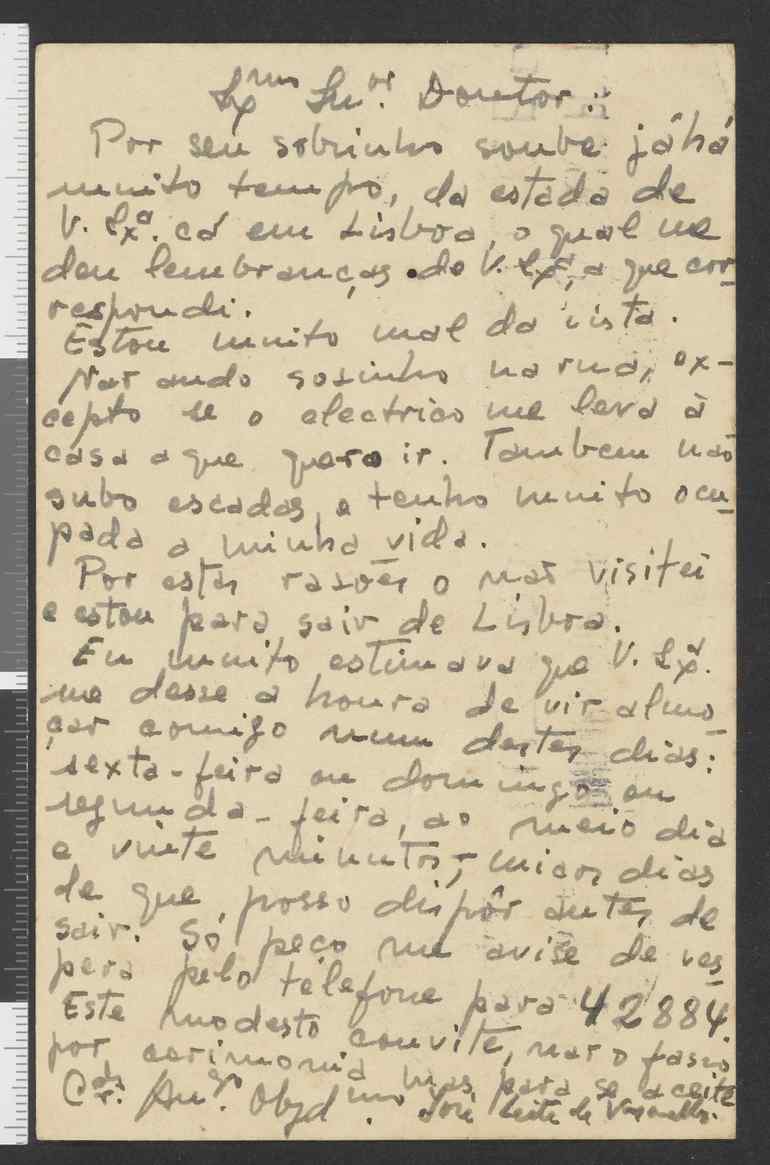 Exmo Snr. Doutor:
Por seu sobrinho soube já há
muito tempo, da estada de
V. Exª. cá em Lisboa, o qual me
deu lembranças de V. Exª, a que cor-
respondi.
Estou muito mal da vista.
Não ando sozinho na rua, ex-
cepto se o electrico me leva à
casa a que quero ir. Tambem não
subo escadas, e tenho muito ocu-
pada a minha vida.
Por estas razões o não visitei
e estou para sair de Lisboa.
Eu muito estimava que V. Exª.
me desse a honra de vir almo-
çar comigo num destes dias:
sexta-feira ou domingo ou
segunda-feira, ao meio dia
e vinte minutos, - unicos dias
de que posso dispôr antes de
sair. Só peço me avise de ves-
pera pelo telefone para 42884.
Este modesto convite, não o faço
por cerimonia mas para se aceite
Amgo. Obgdmo. José Leite de Vasconcellos.